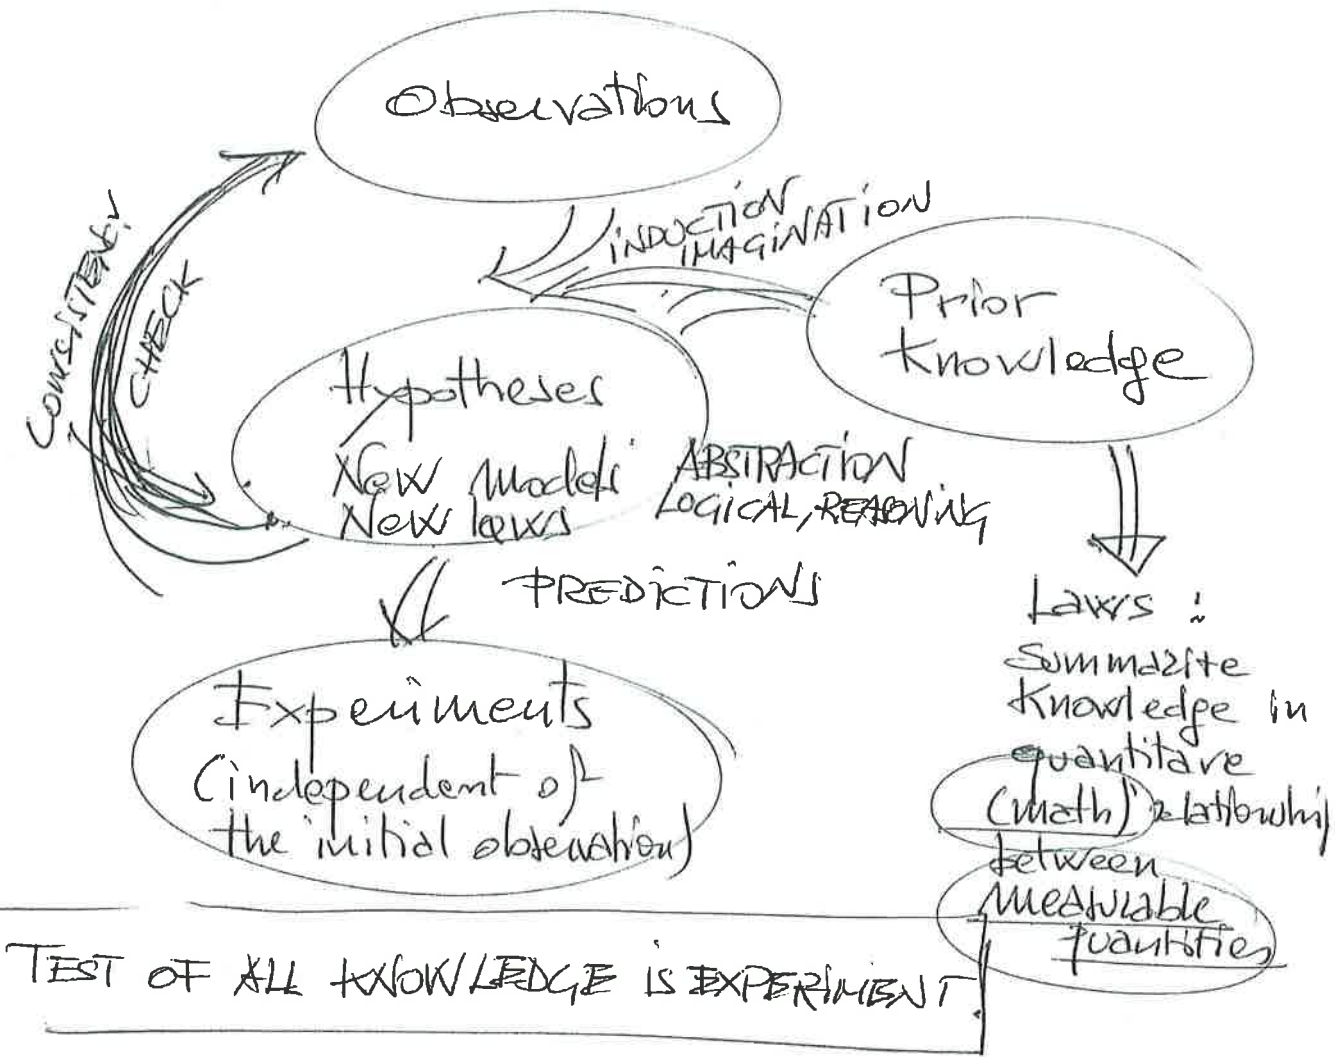 Observations
INDUCTION
IMAGINATION
Prior
Knowledge
CONSISTENCY
CHECK
Hypotheses
New Models
New laws
ABSTRACTION
LOGICAL, REASONING
PREDICTIONS
Experiments
(independent of
the initial observation)
Laws :
Summarite
Knowledge in
quantitave
(math) relationship
between
measurable
quantities
TEST OF ALL KNOWLEDGE IS EXPERIMENT.